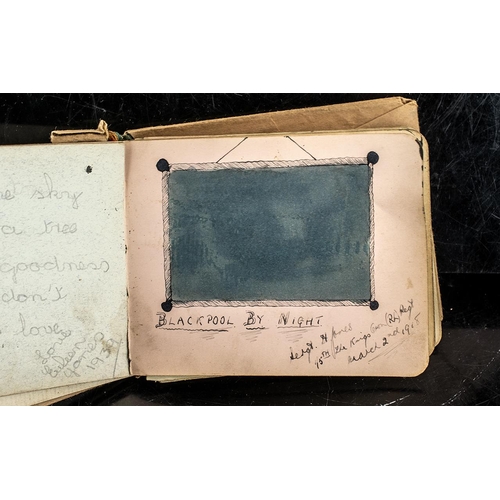 sky
a tree
goodness
don't
love
BLACKPOOL BY NIGHT
Sergt. H Jones
15th/The Kings Own (RL) Regt
March 2nd 1915